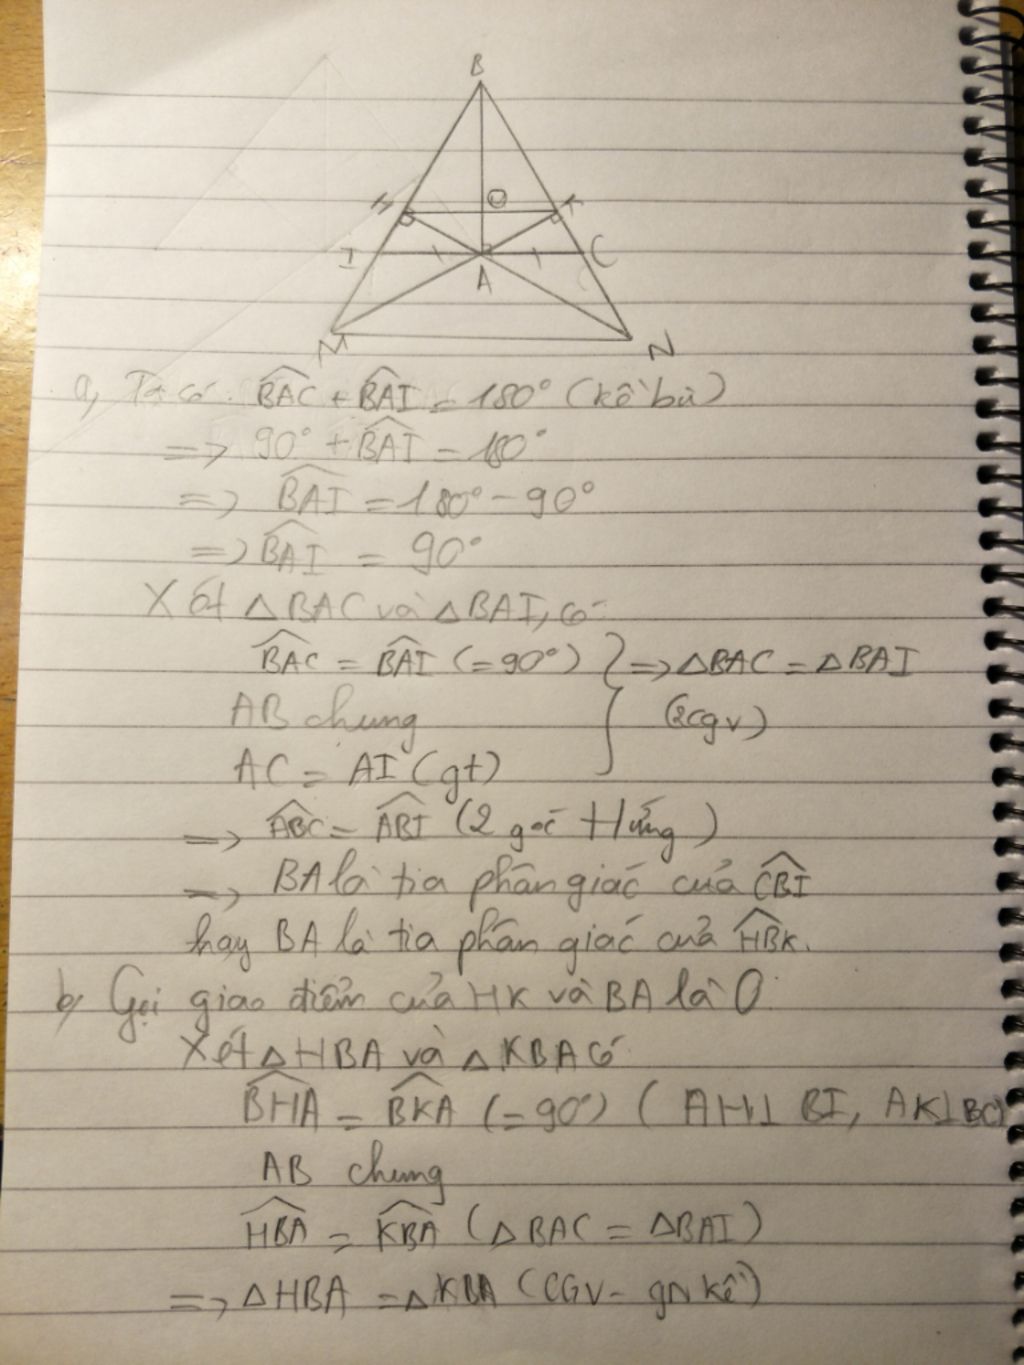 B
H O K
I A C
M N
a, Ta có: BAC + BAI = 180° (kề bù)
=> 90° + BAI = 180°
=> BAI = 180° - 90°
=> BAI = 90°
Xét △BAC và △BAI, có:
BAC = BAI (= 90°) } => △BAC = △BAI
AB chung (2cgv)
AC = AI (gt)
=> ABC = ABI (2 góc tứng)
=> BA là tia phân giác của CBI
hay BA là tia phân giác của HBK.
b, Gọi giao điểm của HK và BA là O
Xét △HBA và △KBA có
BHA = BKA (= 90°) ( AH⊥ BI, AK⊥BC)
AB chung
HBA = KBA (△BAC = △BAI)
=> △HBA = △KBA (CGV - gN kề)